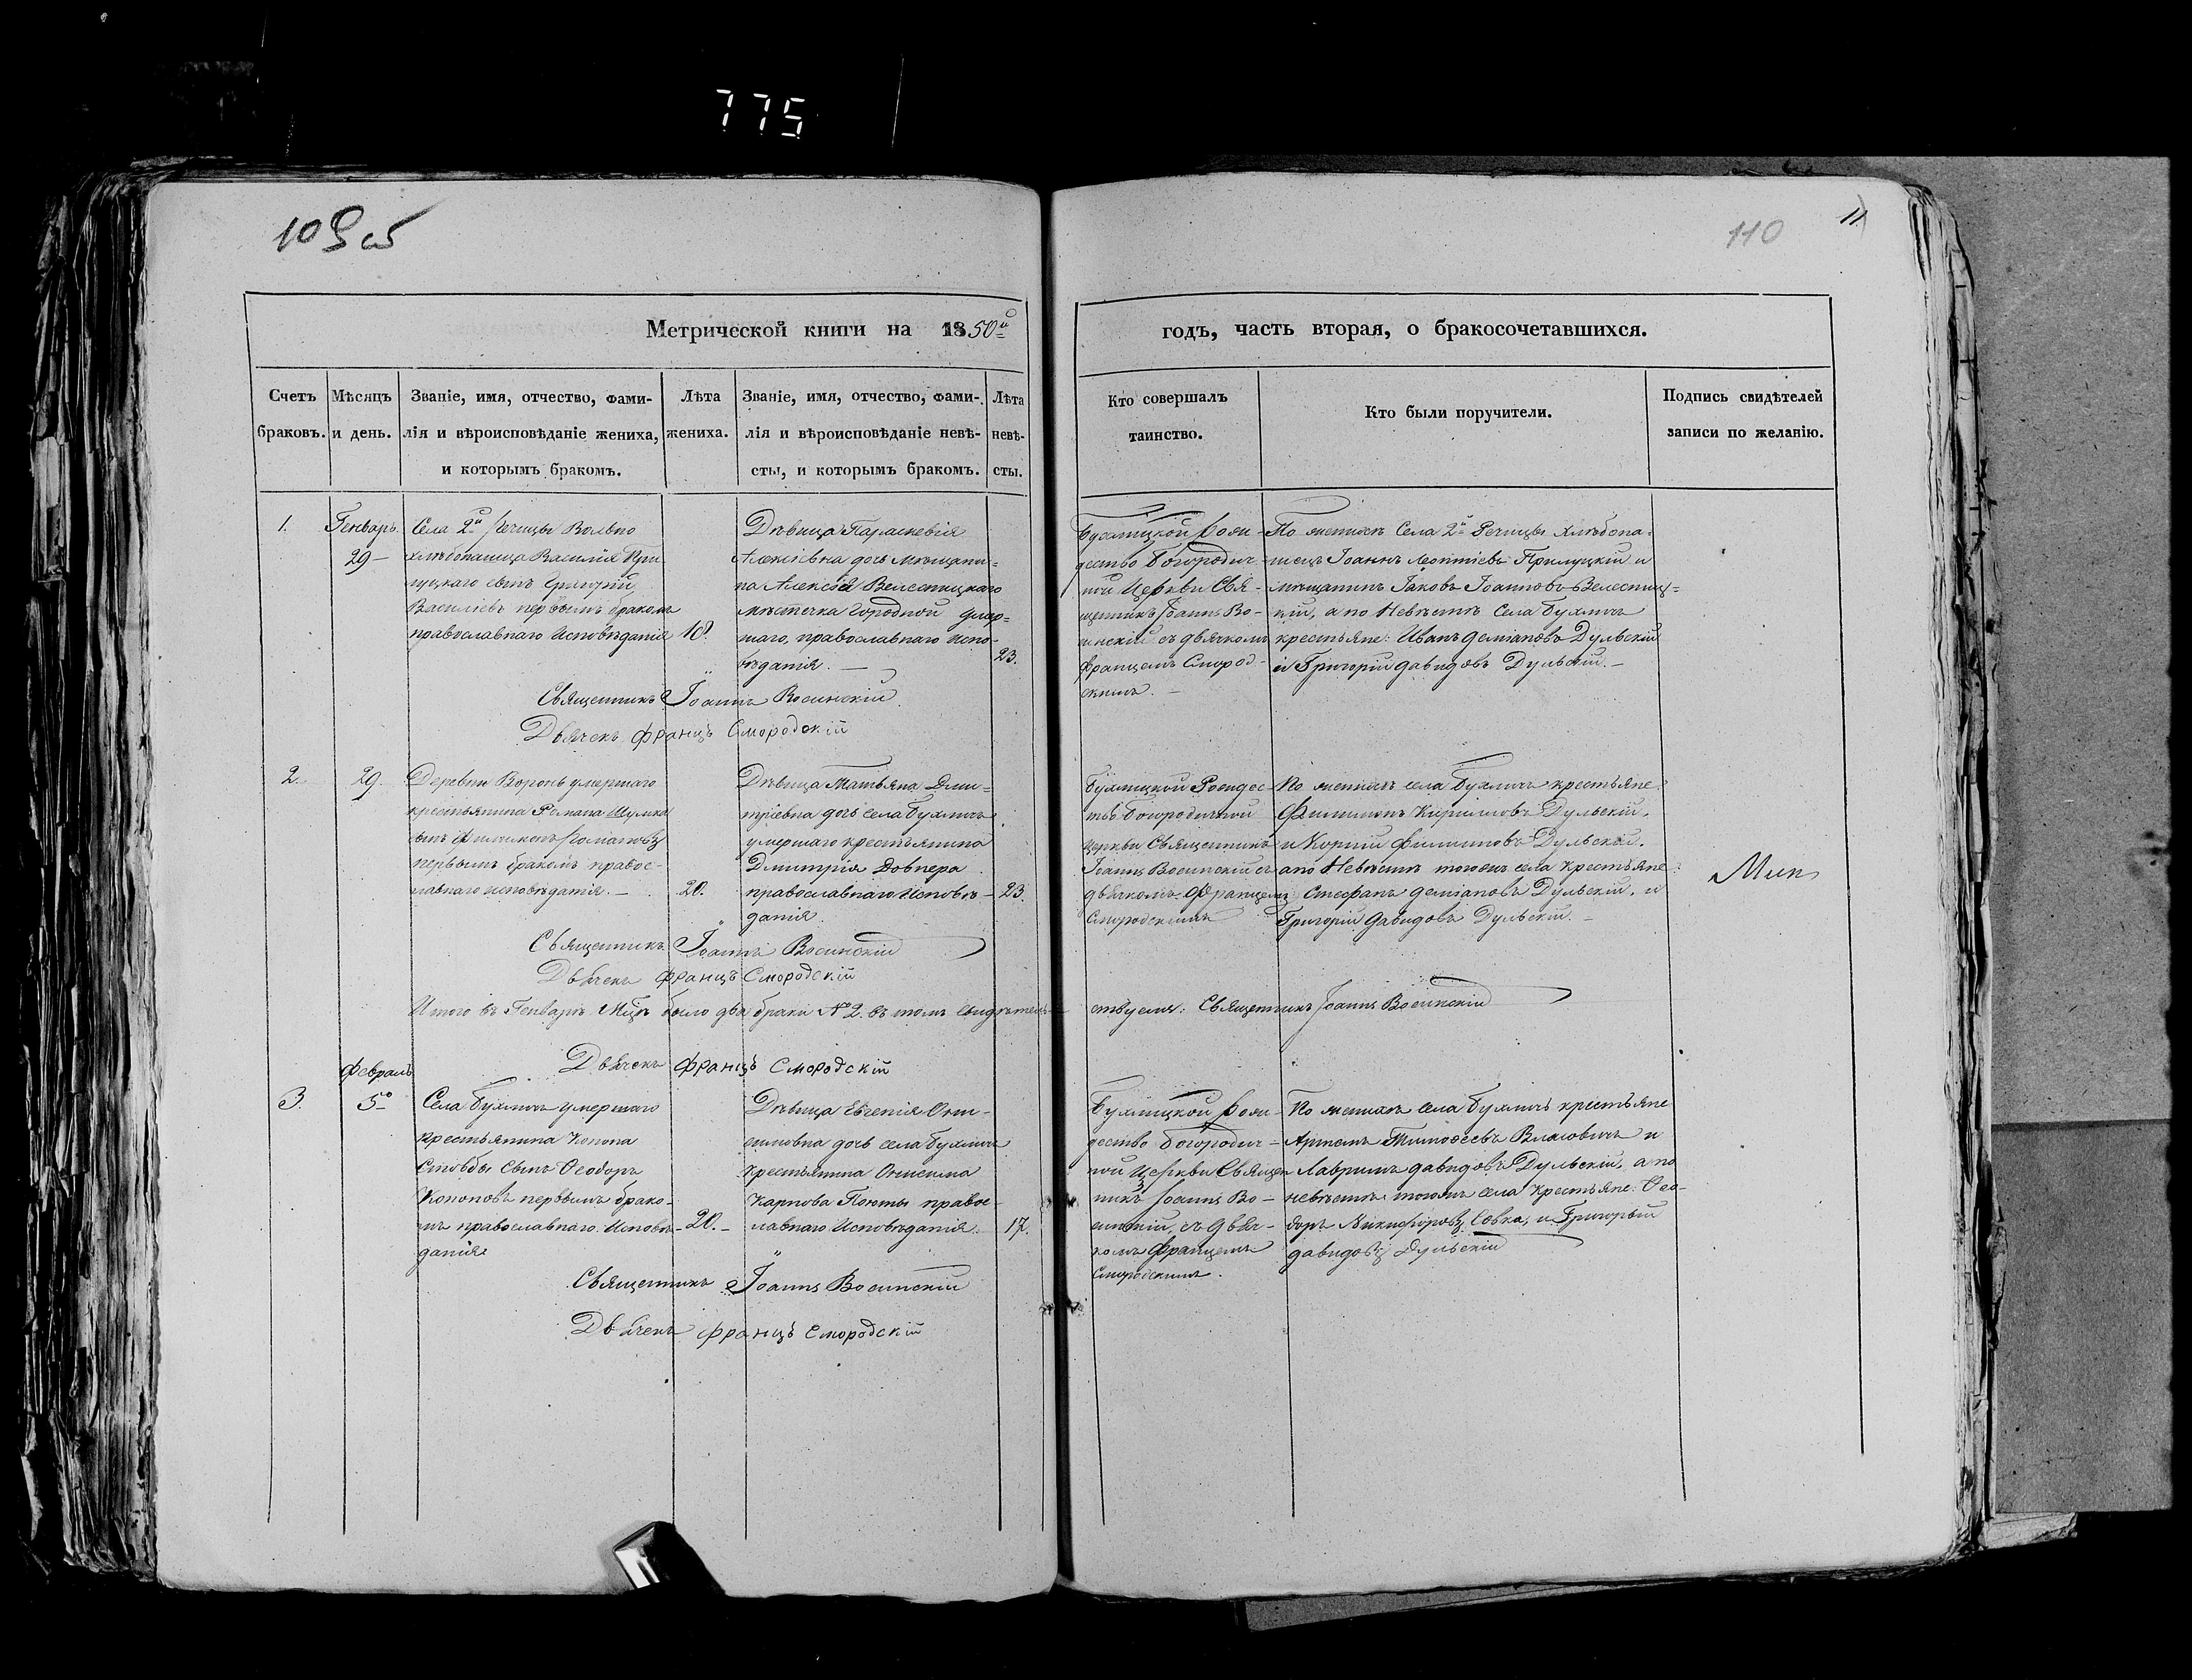 775
109 об
110
11
Метрической книги на 1850й
годъ, часть вторая, о бракосочетавшихся.
Счетъ браковъ.
Мѣсяцъ и день.
Званіе, имя, отчество, фами-
лія и вѣроисповѣданіе жениха,
и которымъ бракомъ.
Лѣта
жениха.
Званіе, имя, отчество, фами-
лія и вѣроисповѣданіе невѣ-
сты, и которымъ бракомъ.
Лѣта
невѣ-
сты.
Кто совершалъ
таинство.
Кто были поручители.
Подпись свидѣтелей
записи по желанію.
1.
Генварь.
29 —
Села 2й Речицы Вольно
хлѣбопашца Василія При
луцкаго сынъ Григорій
Васильевъ первымъ бракомъ
православнаго Исповѣданія
18.
Дѣвица Параскевія
Алексіевна дочь мѣщани-
на Алексѣя Велесницкаго
мѣстечка Городной умер-
шаго, православнаго испо-
вѣданія. —
23.
Бухлицкой Рож-
дество Богородич-
ной Церкви Свя-
щенникъ Іоаннъ Во-
инскій съ дьячкомъ
Францемъ Смород-
скимъ. —
По женихѣ Села 2й Речицы хлѣбопа-
шецъ Іоаннъ Леонтіевъ Прилуцкій и
мѣщанинъ Іаковъ Іоанновъ Велесниц-
кій, а по Невѣстѣ Села Бухличъ
крестьяне: Иванъ Деміановъ Дульскій
и Григорій Давидовъ Дульскій. —
Священникъ Іоаннъ
Дьячекъ Францъ Смородскій
2.
29.
Деревни Воронь умершаго
крестьянина Романа
сынъ Филимонъ Романовъ
первымъ бракомъ правос-
лавнаго исповѣданія. —
20.
Дѣвица Татьяна Дми-
тріевна дочь села Бухличъ
умершаго крестьянина
Димитрія Довнера
православнаго Исповѣ-
данія.
23.
Бухлицкой Рождес-
тво Богородичной
Церкви Священникъ
Іоаннъ съ
дьякомъ Францемъ
Смородскимъ
По женихѣ села Бухличъ крестьяне:
Филимонъ Кириловъ Дульскій,
и Филиповъ Дульскій.
а по Невѣстѣ тогожъ села Крестьяне:
Стефанъ Деміановъ Дульскій, и
Григорій Давидовъ Дульскій. —
Мин
Священникъ Іоаннъ
Дьячекъ Францъ Смородскій
Итого въ Генварѣ Мцѣ было два брака № 2. въ томъ свидѣтель-
ствуемъ: Священникъ Іоаннъ
Дьячекъ Францъ Смородскій
Февраль
3.
5го
Села Бухличъ умершаго
Крестьянина Конона
Стовбы Сынъ Ѳеодоръ
Кононовъ первымъ брако-
мъ православнаго Исповѣ-
данія
20. —
Дѣвица Евгенія Они-
симовна дочь села Бухличъ
Крестьянина Онисима
Карпова правос-
лавнаго Исповѣданія.
17.
Бухлицкой Рож-
дество Богородич-
ной Церкви Священ
никъ Іоаннъ
съ дьяч-
комъ Францемъ
Смородскимъ.
По женихѣ села Бухличъ крестьяне
Артемъ Тимоѳеевъ Власовичъ и
Лавринъ Давидовъ Дульскій, а по
невѣстѣ тогожъ села Крестьяне: Ѳео-
доръ Никифоровъ Совка, и Григорій
Давидовъ Дульскій
Священникъ Іоаннъ
Дьячекъ Францъ Смородскій